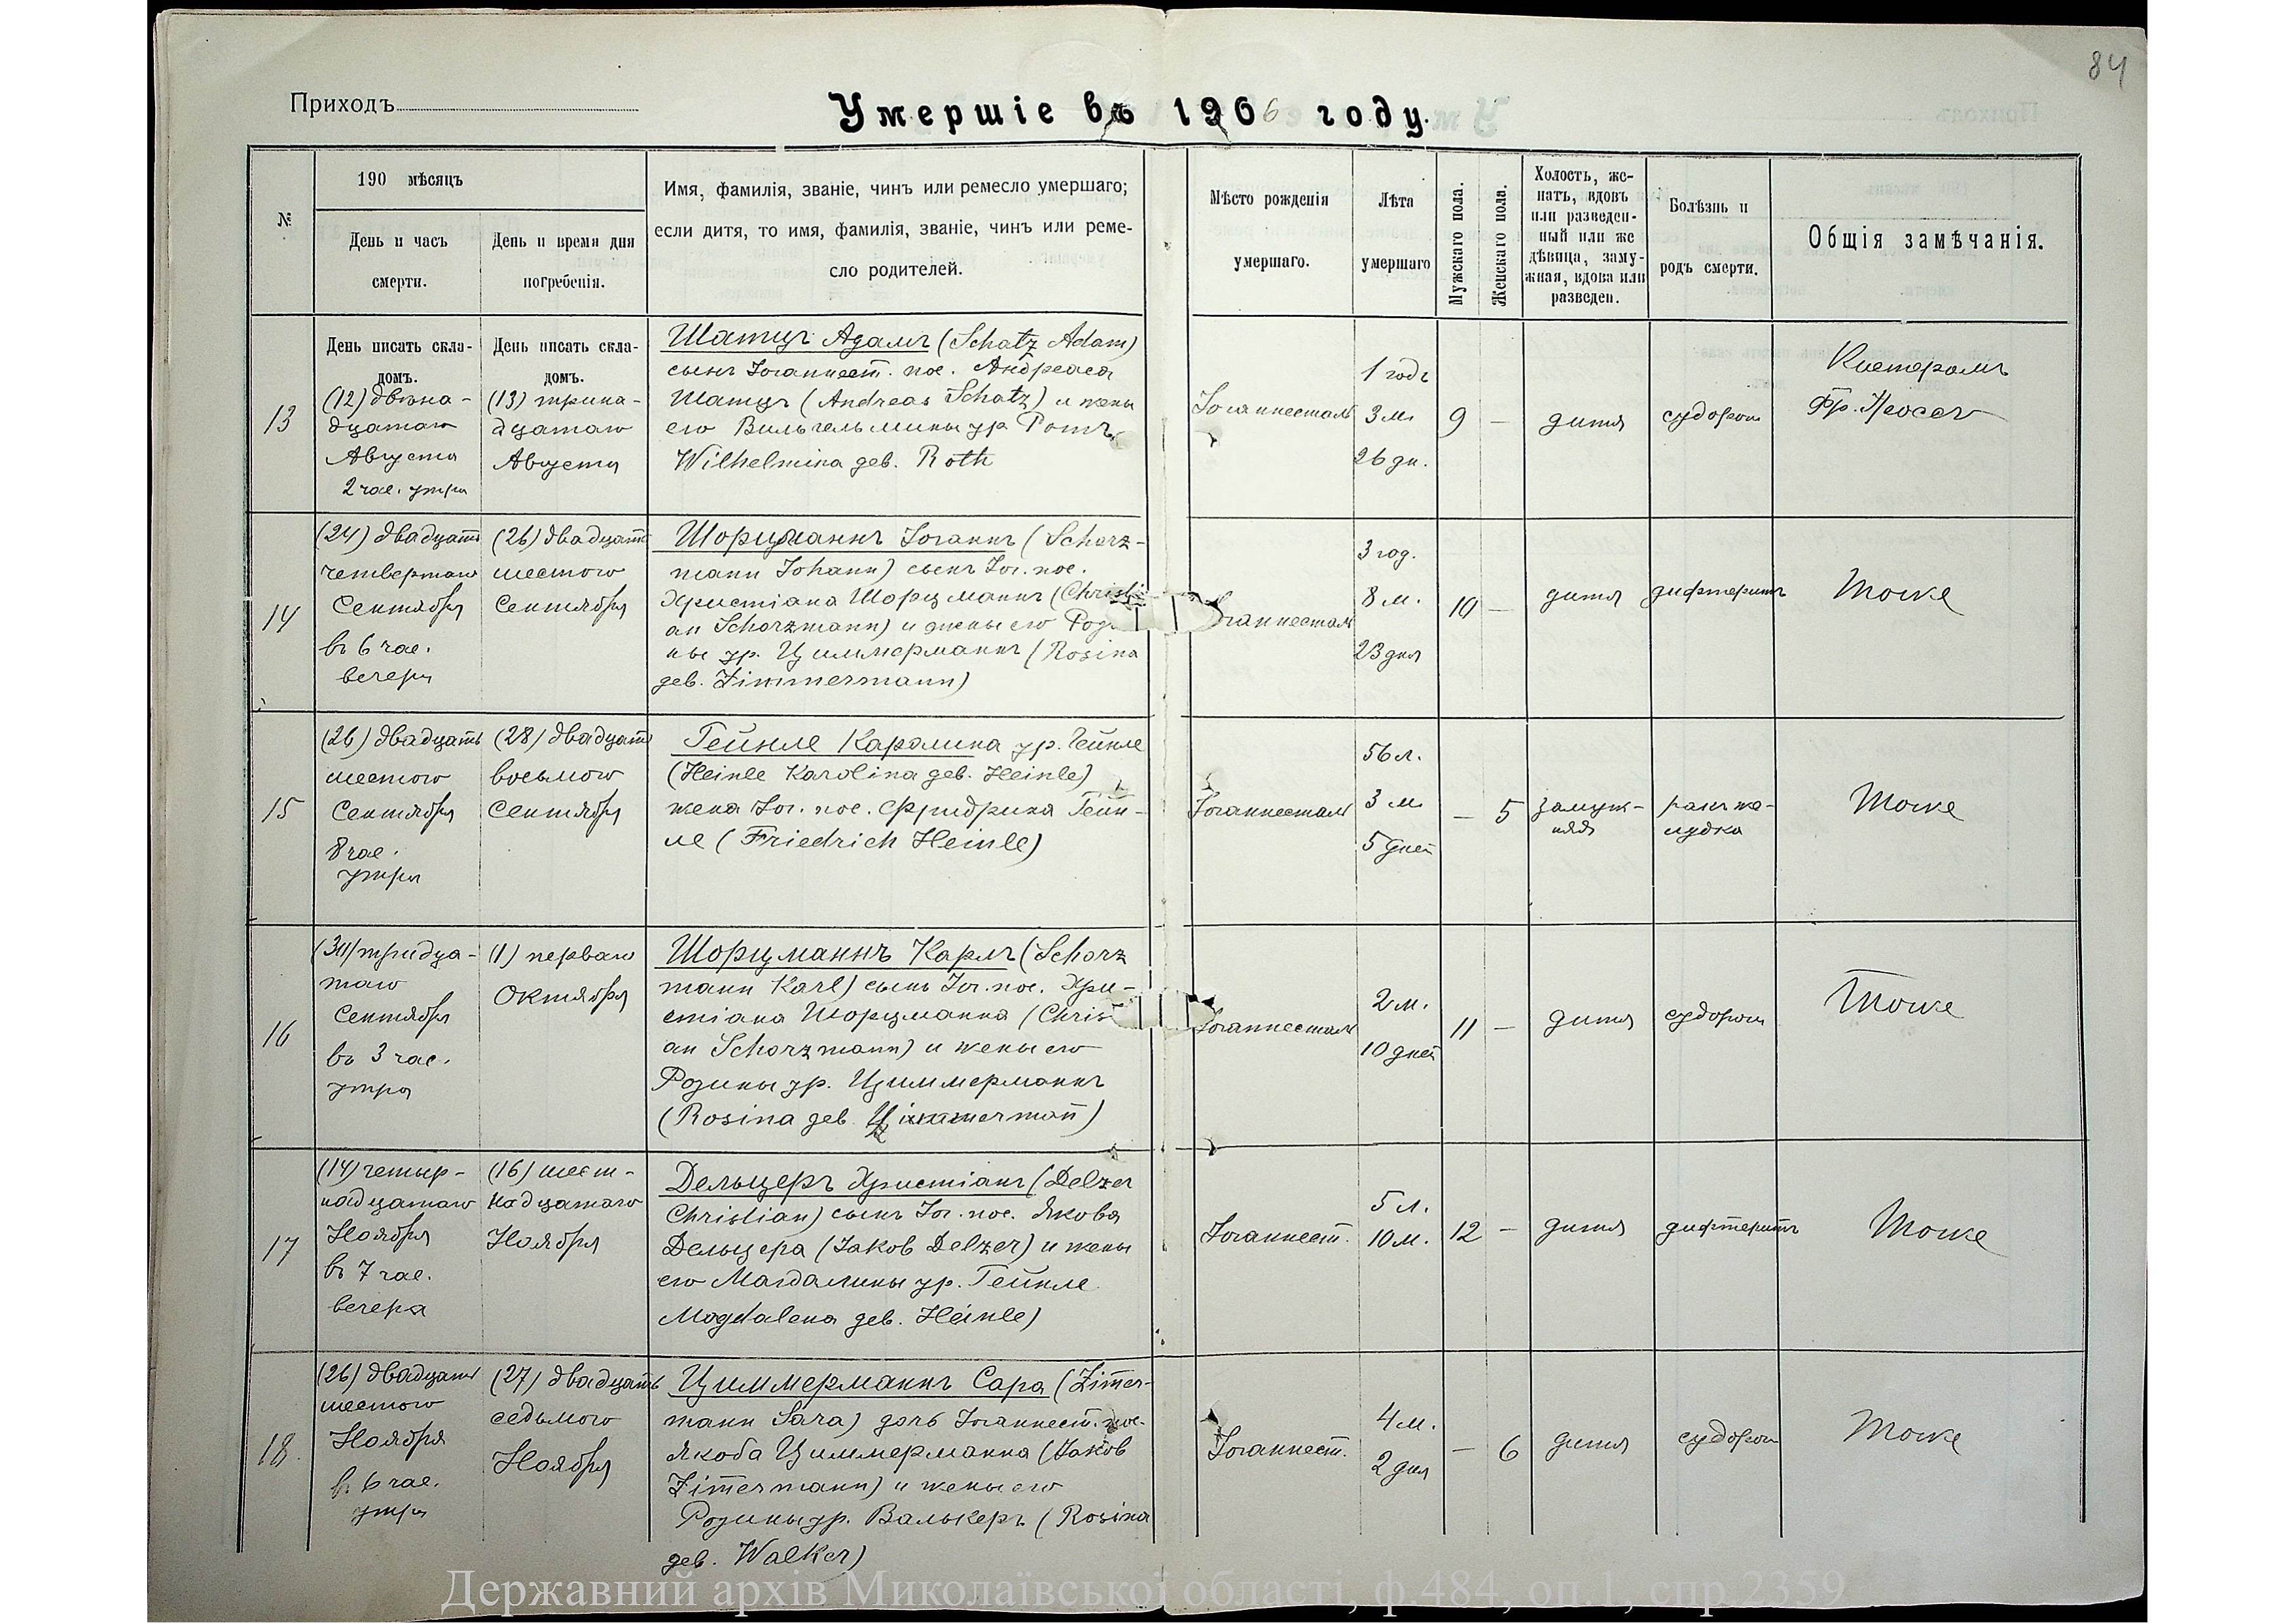 84
Приходъ
Умершіе въ 1906 году.
№
190 мѣсяцъ
День и часъ смерти.
День и время дня погребенія.
Имя, фамилія, званіе, чинъ или ремесло умершаго;
если дитя, то имя, фамилія, званіе, чинъ или реме-
сло родителей.
Мѣсто рожденія
умершаго.
Лѣта
умершаго
Мужскаго пола.
Женскаго пола.
Холостъ, же-
натъ, вдовъ
или разведен-
ный или же
дѣвица, заму-
жная, вдова или
разведен.
Болѣзнь и
родъ смерти.
Общія замѣчанія.
День писать скла-
домъ.
День писать скла-
домъ.
13
(12) двѣна-
дцатаго
Августа
2 час. утра
(13) трина-
дцатаго
Августа
Шатцъ Адамъ (Schatz Adam)
сынъ Іоганнест. пос. Андреаса
Шатцъ (Andreas Schatz) и жены
его Вильгельмины ур. Ротъ
Wilhelmina geb. Roth
Іоганнесталь
1 годъ
3 м.
26 дн.
9
—
дитя
судороги
Кистеромъ
Фр.
14
(24) двадцать
четвертаго
Сентября
въ 6 час.
вечера
(26) двадцать
шестого
Сентября
Шорцманнъ Іоганнъ (Schorz-
mann Johann) сынъ Іог. пос.
Христіана Шорцманнъ (Christi-
an Schorzmann) и жены его
ны ур. Циммерманнъ (Rosina
geb. Zimmermann)
Іоганнесталь
3 год.
8 м.
23 дня
10
—
дитя
дифтеритъ
Тоже
15
(26) двадцать
шестого
Сентября
8 час.
утра
(28) двадцать
восьмого
Сентября
Гейнле Каролина ур. Гейнле
(Heinle Karolina geb. Heinle)
жена Іог. пос. Фридриха Гейн-
ле (Friedrich Heinle)
Іоганнесталь
56 л.
3 м.
5 дней
—
5
замуж-
няя
ракъ же-
лудка
Тоже
16
(30) тридца-
таго
Сентября
въ 3 час.
утра
(1) перваго
Октября
Шорцманнъ Карлъ (Schorz
mann Karl) сынъ Іог. пос. Хри-
стіана Шорцманна (Christi
an Schorzmann) и жены его
Розины ур. Циммерманнъ
(Rosina geb. Zimmermann)
Іоганнесталь
2 м.
10 дней
11
—
дитя
судороги
Тоже
17
(14) четыр-
надцатаго
Ноября
въ 7 час.
вечера
(16) шест-
надцатаго
Ноября
Дельцеръ Христіанъ (Delzer
Christian) сынъ Іог. пос. Якова
Дельцера (Jakob Delzer) и жены
его Магдалины ур. Гейнле
Magdalena geb. Heinle)
Іоганнест.
5 л.
10 м.
12
—
дитя
дифтеритъ
Тоже
18.
(26) двадцать
шестого
Ноября
в. 6 час.
утра
(27) двадцать
седьмого
Ноября
Циммерманнъ Сара (Zimer-
mann Sara) дочь Іоганнест. пос.
Якоба Циммерманна (Jakob
Zimermann) и жены его
Розины ур. Валькеръ (Rosina
geb. Walker)
Іоганнест.
4 м.
2 дня
—
6
дитя
судороги
Тоже
Державний архів Миколаївської області, ф.484, оп.1, спр.2359